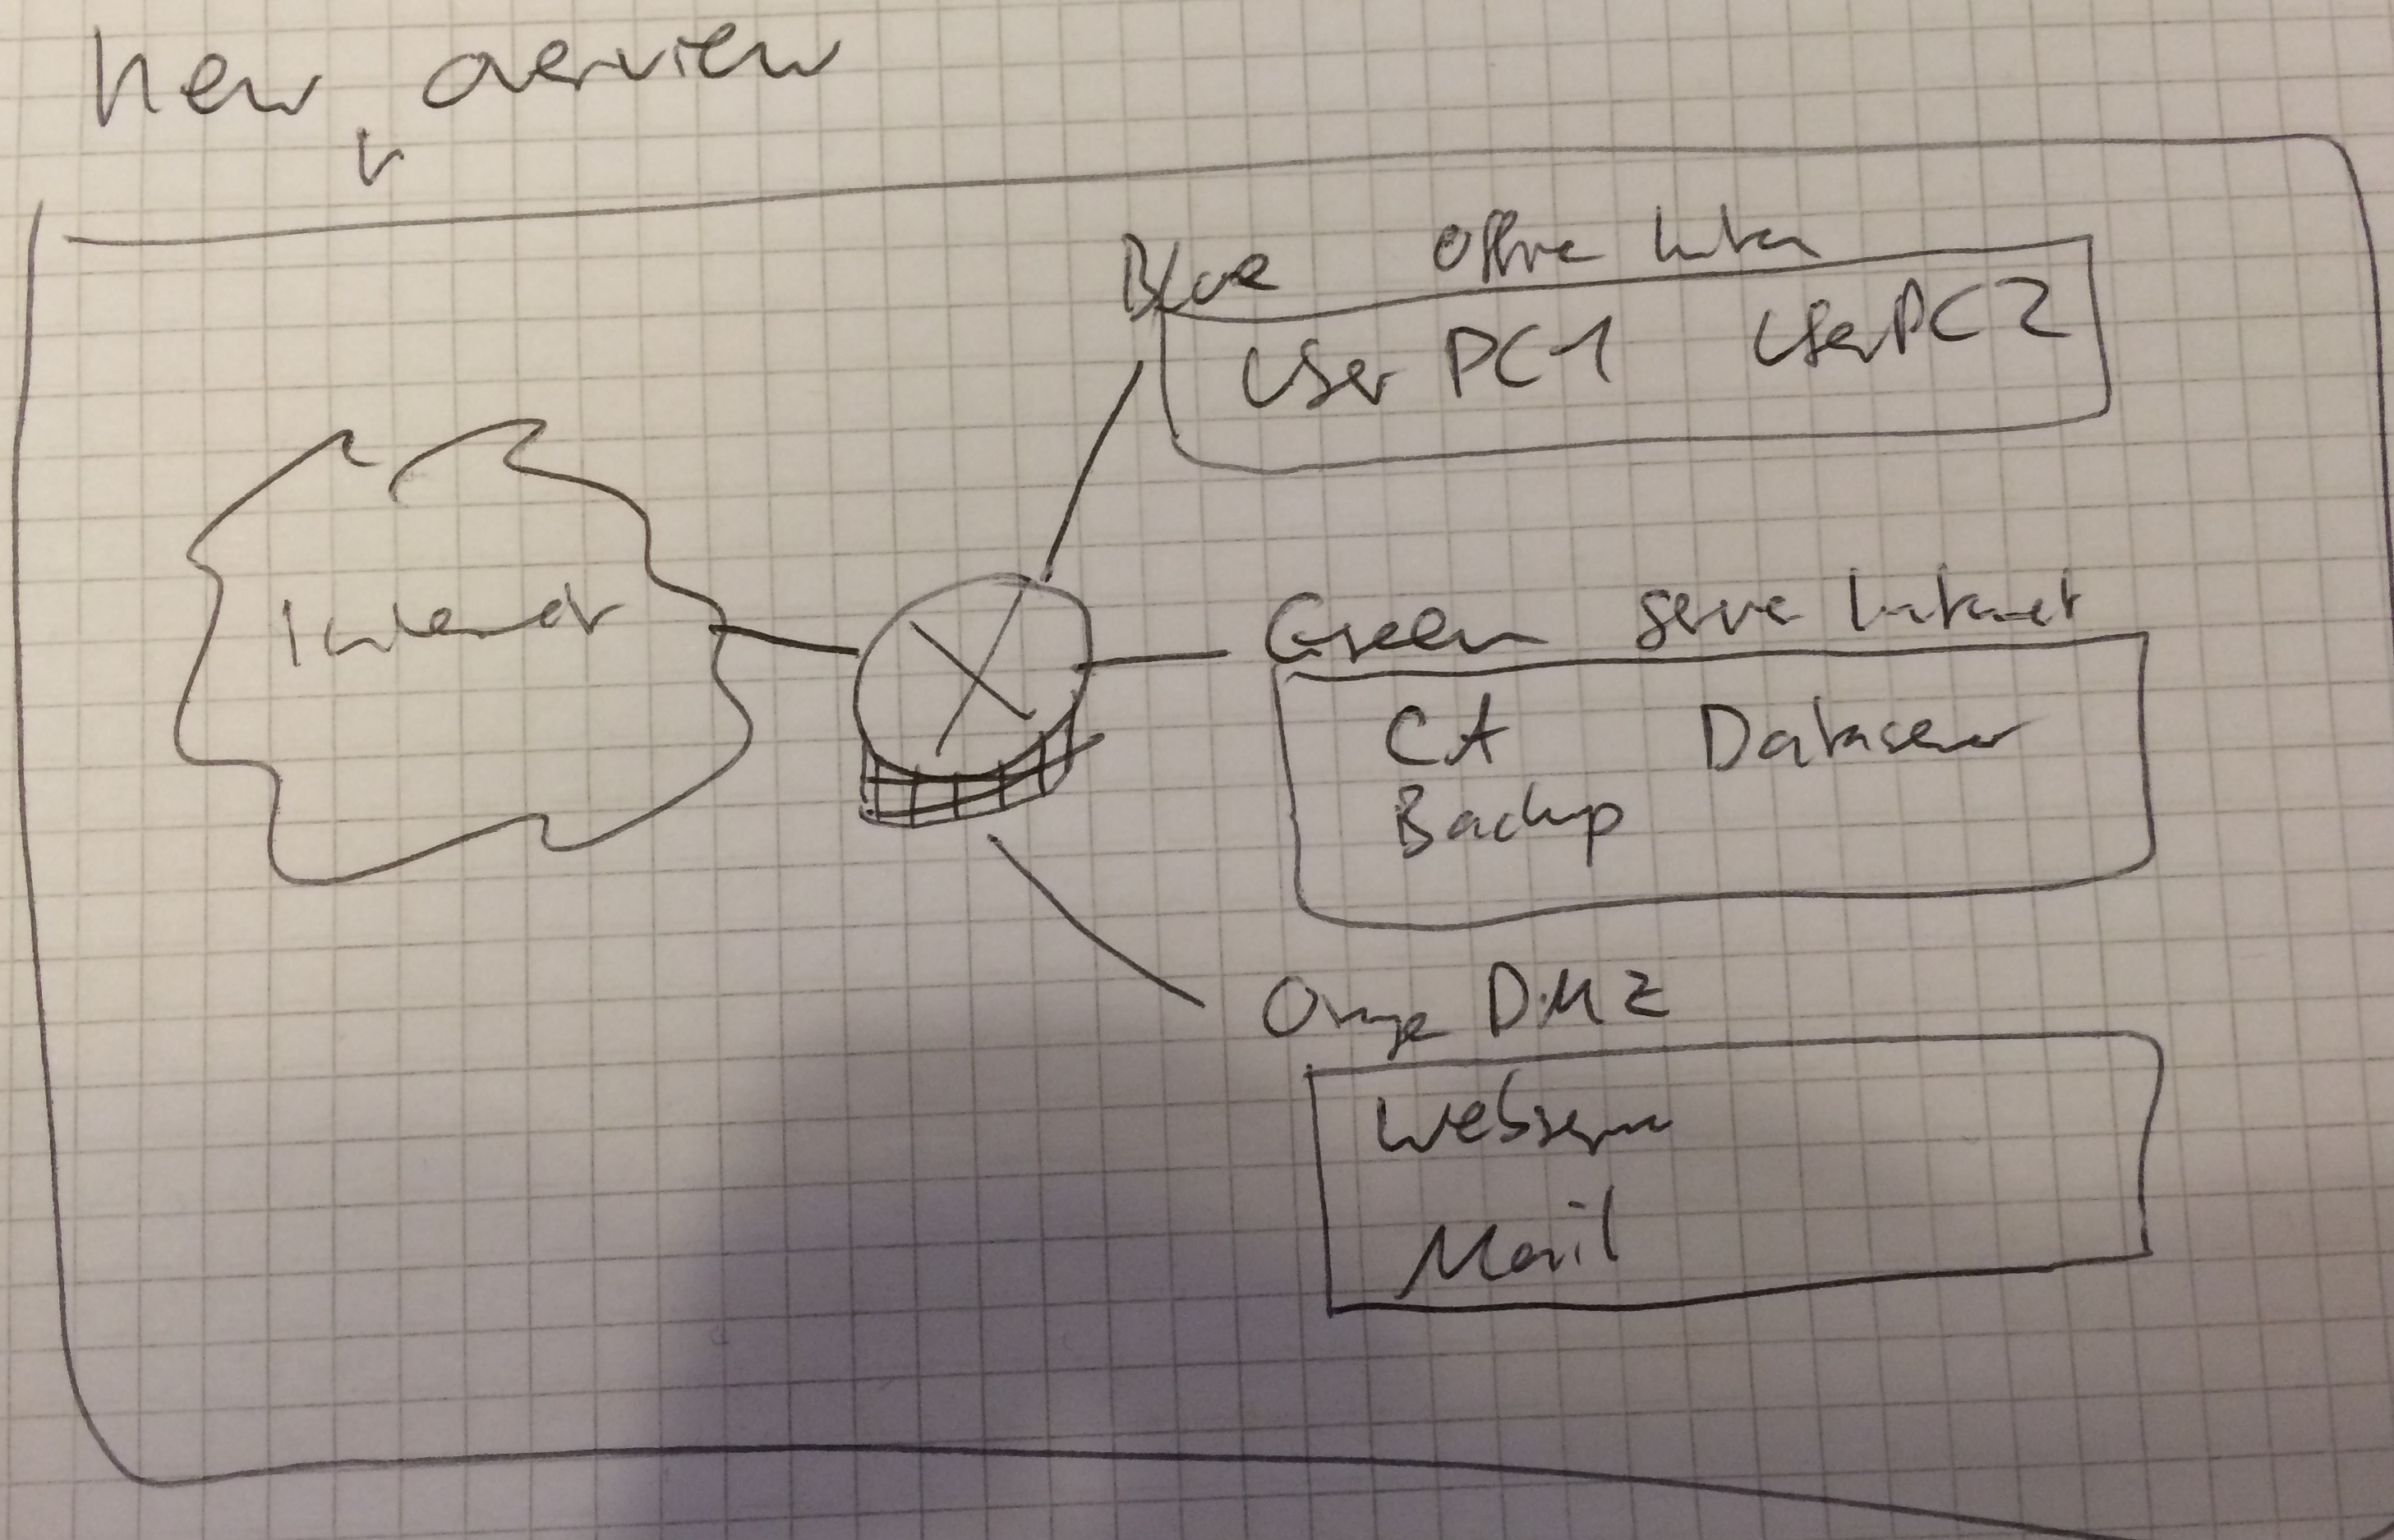 New overview
Blue Office
User PC1 User PC2
Internet
Green Intranet
CA Dataserver
Backup
Orange DMZ
Webserver
Mail